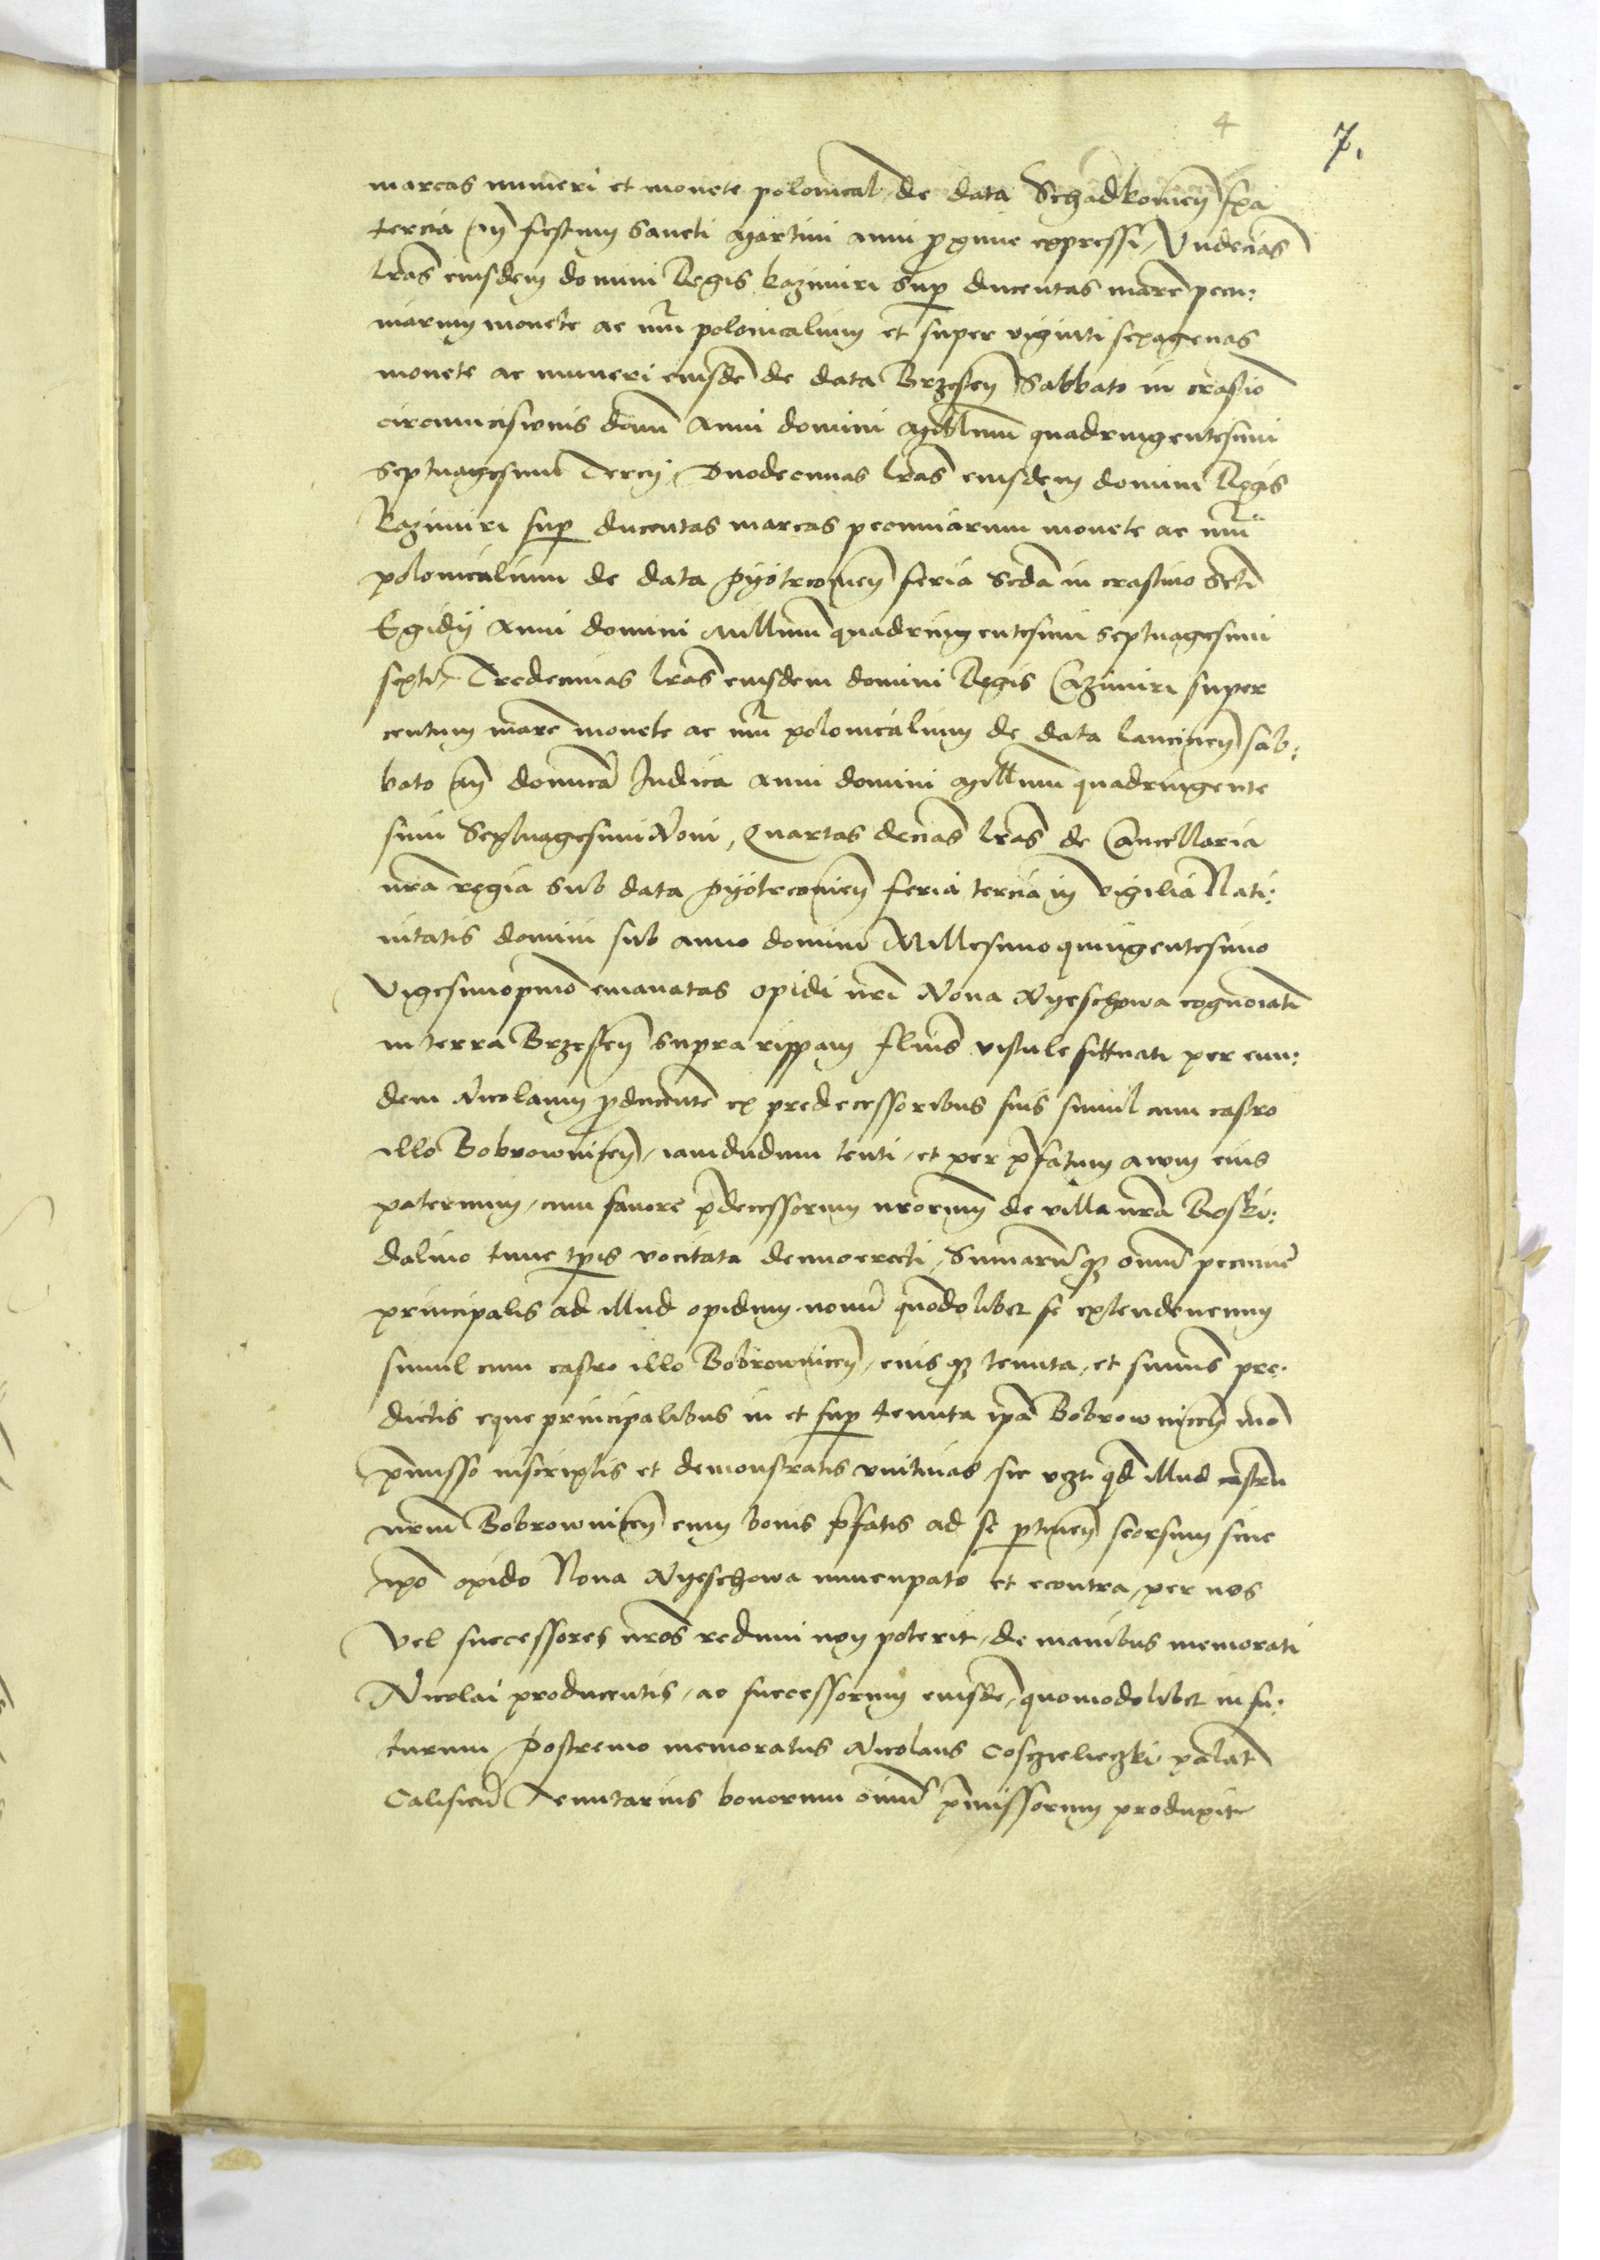 4
7.
marcas numeri et monete polonical de data Schadkouieñ fexa
tercia añ festum Sancti Martini anni proxime expressi, Vndecias
lras eiusdem domini Regis Kazimiri sup ducentas marc pecu:
niarum monete ac nūi polonicalium et super viginti sexagenas
monete ac numeri eiusdē de data Brzesteñ Sabbato in crastio
circumcisionis domī Anni domini Millimī quadringentesimi
septuagesimi Tercij, Duodecimas lras eiusdem domini Regis
Kazimiri sup ducentas marcas pecuniarum monete ac nūi
polonicalium de data Pyotrcouieñ feria Scda in crastino Scti
Egidij Anni domini Millimī quadringentesimi septuagesimi
sexti, Tredecimas lras eiusdem domini Regis Cazimiri super
centum marc monete ac nūi polonicalium de data Lancicieñ sab:
bato añ dominicā Iudica Anni domini Millimī quadringente
simi Septuagesimi Noni, Quartas decias lras de Cancellaria
nra regia sub data Pyotrcouieñ feria tercia in vigilia Nati:
uitatis domini sub anno domini Millesimo quingentesimo
Vigesimopmo emanatas opidi nri Noua Nyeschowa cognoīati
in terra Brzesteñ supra rippam fluuis vistule sittuati per eun:
dem Nicolaum producentē ex predecessoribus suis simul cum castro
illo Bobrowniceñ, iamdudum tenti, et per pfatum auum eius
paternum, cum fauore pdecessorum nrorum de villa nra Roski:
dalino tunc tpis vocitata denuoerecti, Summarūqȝ omniū pecunie
principalis ad illud opidum nouū quodolibet se extendencium
simul cum castro illo Bobrowniceñ, eiusqȝ tenuta, et summis pre:
dictis eque principalibus in et sup tenuta ipa Bobrowniceñ mō
pmisso inscriptis et demonstratis vnitiuas sic vzt qd illud castrū
nrum Bobrowniceñ cum bonis pfatis ad se ptineñ seorsum sine
ipō opido Noua Nyeschowa nuncupato et econtra, per nos
Vel successores nros redimi non poterit, de manibus memorati
Nicolai producentis, ac successorum eiusdē, quomodolibet in fu:
turum, Postremo memoratus Nicolaus Cosczieleczki palatī
Calisieñ Tenutarius bonorum omniū pmissorum produxit